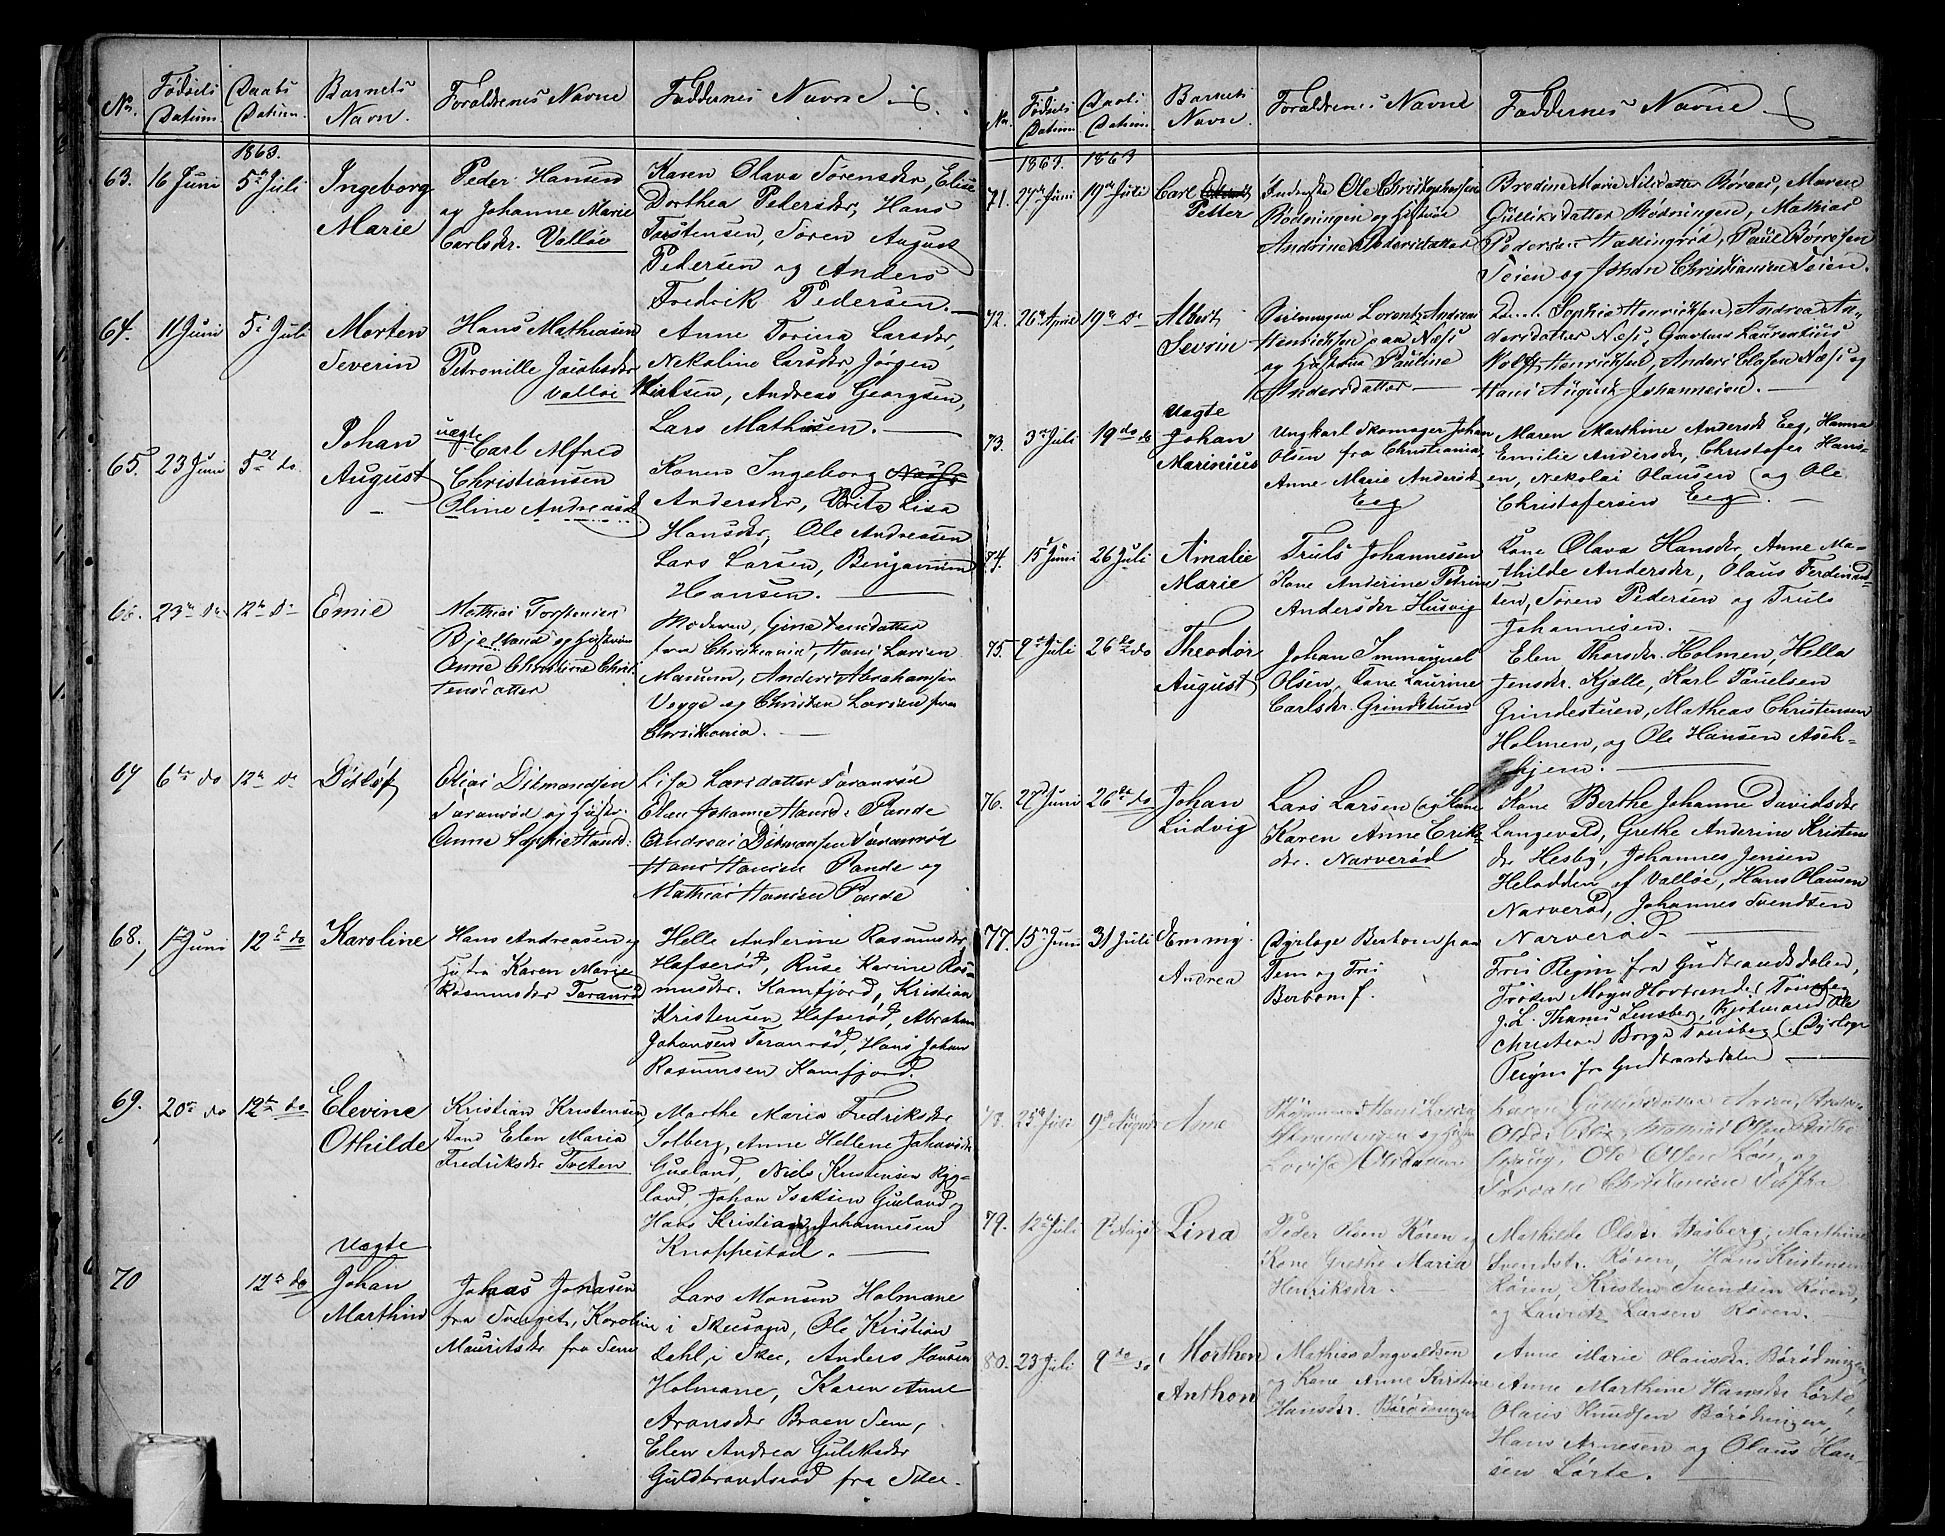 No. Fødsels Datum Daabs Datum. Barnets Navn. Forældrenes Navne Faddernes Navne
1863.
63. 16 Juni 5te Juli Ingeborg Marie
Peder Hansen
og Johanne Marie
Carlsdr. Valløe
Karen Olava Sørensdr, Elise
Dorthea Pedersdr, Hans
Torstensen, Søren August
Pedersen og Anders
Fredrik Pedersen.
64. 11 Juni 5 Juli Morten Severin
Hans Mathiasen
Petronille Jacobsdr
Valløe
Anne Torina Larsdr,
Nekoline Larsdr, Jørgen
Nielsen, Andreas Georgsen,
Lars Mathisen.
65. 23 Juni 5te do. Johan August
uægte
Carl Alfred
Christiansen
Oline Andreasdr
Konen Ingeborg
Andersdr, Brita Lisa
Hansdr, Ole Andreasen
Lars Larsen, Benjamin
Hansen.
66. 23de Do. 12te Do Emie
Mathias Torstensen
Bjelland og Hustru
Anne Christine Chris
tensdatter
Moderen, Gina Jensdatter
fra Christiania, Hans Larsen
Mausum, Anders Abrahamsen
Vegge og Christen Larsen fra
Christiania.
67 6te do 12te Do Ditløf
Olias Ditmandsen
Taranrød og Hustr.
Anne Sophie Hansd.
Lisa Larsdatter Taranrød
Elen Johanne Hansd: Pande
Andreas Ditmansen Taranrød
Hans Hansen Pande og
Mathias Hansen Pande
68. 1ste Juni 12te do Karoline
Hans Andreasen og
Hustru Karen Marie
Rasmusdr Taranrød
Helle Anderine Rasmusdr
Hafserød, Ruse Karine Ras-
musdr. Kamfjord, Kristian
Kristensen Hafserød, Abraham
Johansen Taranrød, Hans Johan
Rasmusen Kamfjord.
69. 20de do 12te do Elevine Othilde
Kristian Kristensen
Elen Maria
Fredriksdr Toeten
Marthe Maria Fredriksdr
Solberg, Anne Hellene
Gusland, Niels Kristensen Ryg-
land, Johan Isaksen Gusland, og
Hans Kristian Johannesen
Knappestad.
Uægte
70 12te do Johan Marthin
Johas Jonasen
fra Sverget, Karoline
Mauritsdr fra Sem
Lars Monsen Holmane
i Skeesogn, Ole Kristian
Dahl, i Skee, Anders Hansen
Holmane, Karen Anne
Aronsdr Braen Sem,
Elen Andrea Guliksdr
Guldbrandsrød fra Skee.
No. Fødsels Datum Daabs Datum. Barnets Navn. Forældrenes Navne Faddernes Navne
1863. 1863
71. 27de Juni 19de Juli Carl Petter
Ole Christophersen
Rødningen og Hustrue
Andrine Pedersdatter
Brodine Marie Nilsdatter Børaas, Maren
Gulliksdatter Rødningen, Mathias
Pedersen Hassingrød, Paul Børresen
Teien og Johan Christiansen Teien.
72. 26de April 19de Do Albert Sevrin
Lorentz Andreas
Henrichsen paa Næss
og Hustru Pauline
Andersdatter
Sophie Henrichsen, Andrea An-
dersdatter Næss, Gustav Laurentius
Wolf Henrichsen, Anders Olafsen Næss og
Hans August Johannesen.
Uægte
73. 3de Juli 19de do Johan Marinius
Ungkarl Skomager Johan
Olsen fra Christiania,
Anne Marie Andersdr
Eeg
Maren Marthine Andersdr Eeg, Hanna
Emilie Andersdr, Christofer Hans-
en, Nekolai Olausen og Ole
Christofersen Eeg.
74. 15 Juni 26 Juli Amalie Marie
Truls Johannesen
Kone Anderine Petrine
Andersdr Husvig
Kone Olava Hansdr, Anne Ma-
thilde Andersdr, Olaus Ferdinand-
sen, Søren Pedersen og Truls
Johannesen.
75. 9de Juli 26de do Theodor August
Johan Immanuel
Olsen, Kone Laurine
Carlsdr. Grindstuen
Elen Thorsdr. Holmen, Hella
Jensdr. Kjælle, Karl Paulsen
Grindestuen, Matheas Christensen
Holmen, og Ole Hansen Ask-
hjem.
76. 27 Juni 26de do Johan Ludvig
Lars Larsen og Kone
Karen Anne Eriks-
dr. Narverød
Kone Berthe Johanne Davidsdr
Langevald, Grethe Anderine Kristens
dr Hesby, Johannes Jensen
Heladden af Valløe, Hans Olausen
Narverød, Johannes Svendsen
Narverød.
77. 15de Juni 31 Juli Emmy Andrea
Dyrlæge Berbom paa
Sem og Fris
Berbom f.
Fris Plegm fra Gudbrandsdalen,
Frøken Maya Hovbrender Tønsberg
J. L. Thams Tønsberg, Kjøbmand Ole
Christian Borge Tønsberg, Dyrlæge
Plegm fra Gudbransdalen
78. 25de Juli 9de August Arne
Hans Larsen
og Hustru
Lovise Olsdatter
Ole Olsen og
79. 12te Juli 9de August Lina
Peder Olsen Røren og
Kone Grethe Maria
Henriksdr.
Mathilde Olsdr Basberg, Marthine
Svendsdr. Røren, Hans Kristensen
Røren, Kristen Svendsen Røren,
og Lauretz Larsen Røren.
80. 23 Juli 9de do Morthen Anthon
Mathias Ingvaldsen
og Kone Anne Kirstine
Hansdr. Børødningen
Anne Marie Hansdr. Børødningen
Anne Marthine Hansdr Lørte,
Olaus Knudsen Børødningen,
Hans Arnesen og Olaus Han-
sen Lørte.